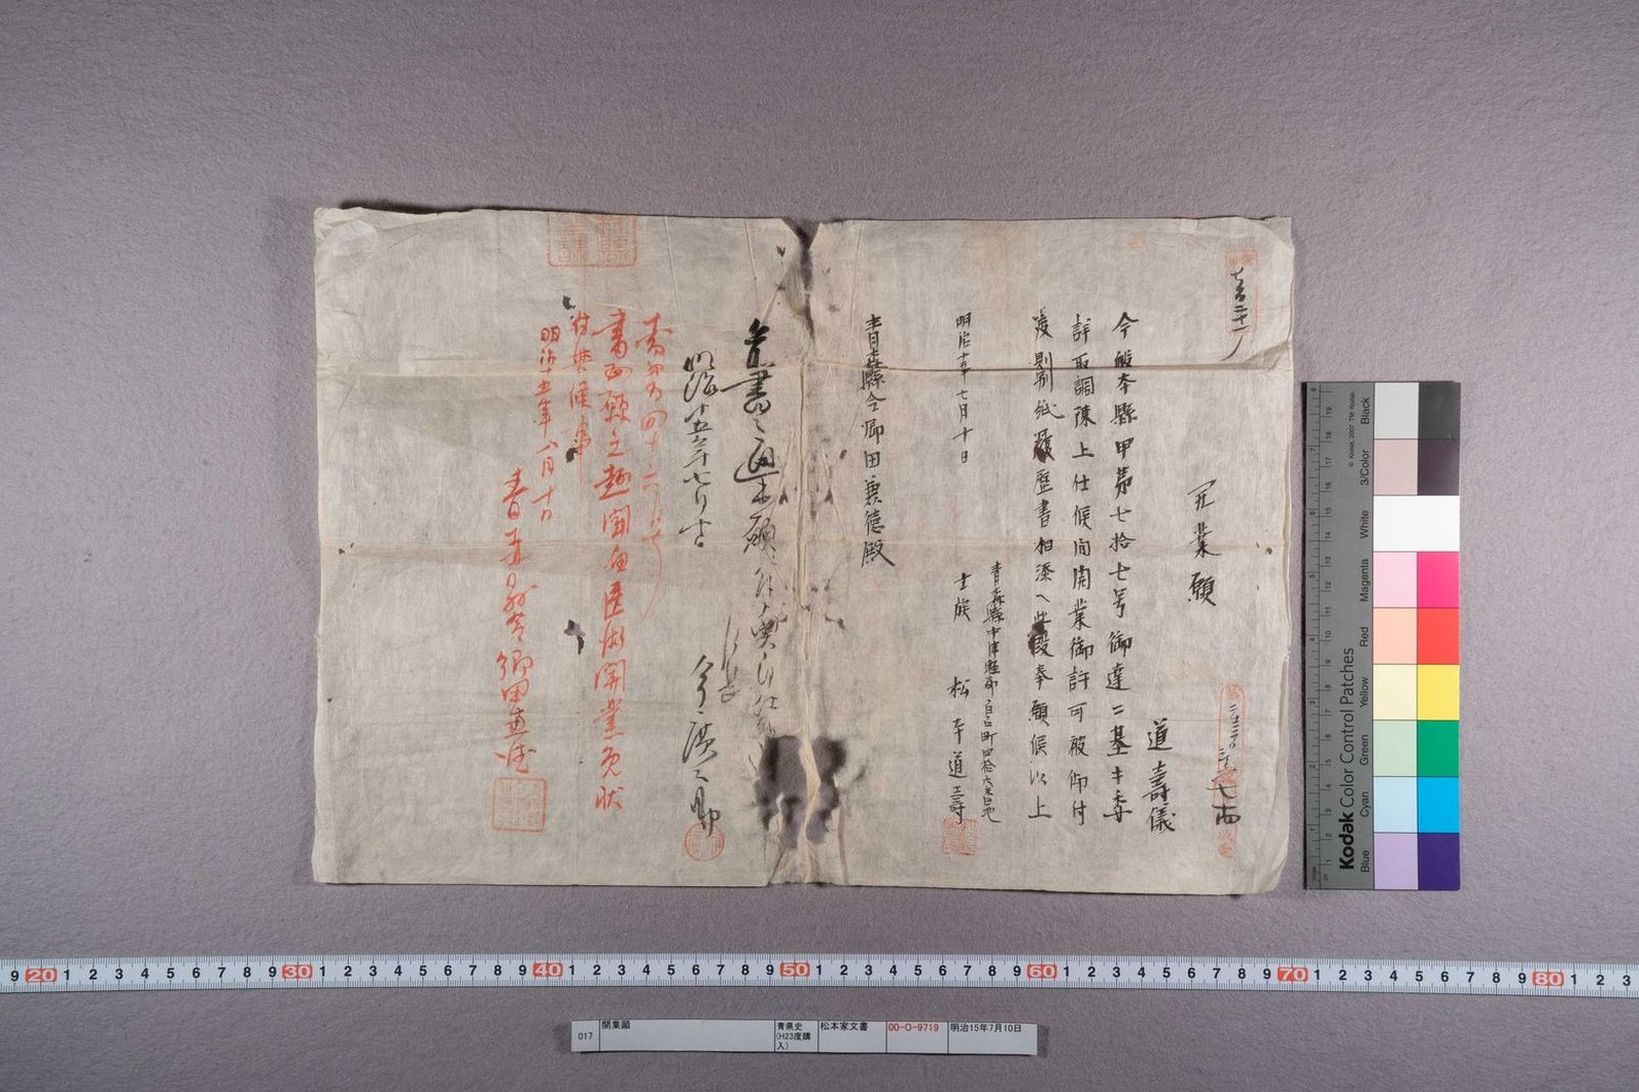 開業願
道壽儀
今般本縣甲第七拾七号御達ニ基キ委
詳取調陳上仕候間開業御許可被仰付
度別紙履歴書相添ヘ此段奉願候以上
青森縣中津軽郡白銀町四拾六番地
士族 松本道壽
明治十五年七月十日
青森縣令郷田兼徳殿
前書之通
戸長
今廣之助
明治十五年七月十日
書面願之趣聞届医術開業免状
付與候事
明治十五年八月十日
青森縣令郷田兼徳
© Kodak, 2007 TM: Kodak
Kodak Color Control Patches
Blue Cyan Green Yellow Red Magenta White 3/Color Black
9 20 1 2 3 4 5 6 7 8 9 30 1 2 3 4 5 6 7 8 9 40 1 2 3 4 5 6 7 8 9 50 1 2 3 4 5 6 7 8 9 60 1 2 3 4 5 6 7 8 9 70 1 2 3 4 5 6 7 8 9 80 1 2 3
017 開業願 青県史(H23度購入) 松本家文書 00-O-9719 明治15年7月10日